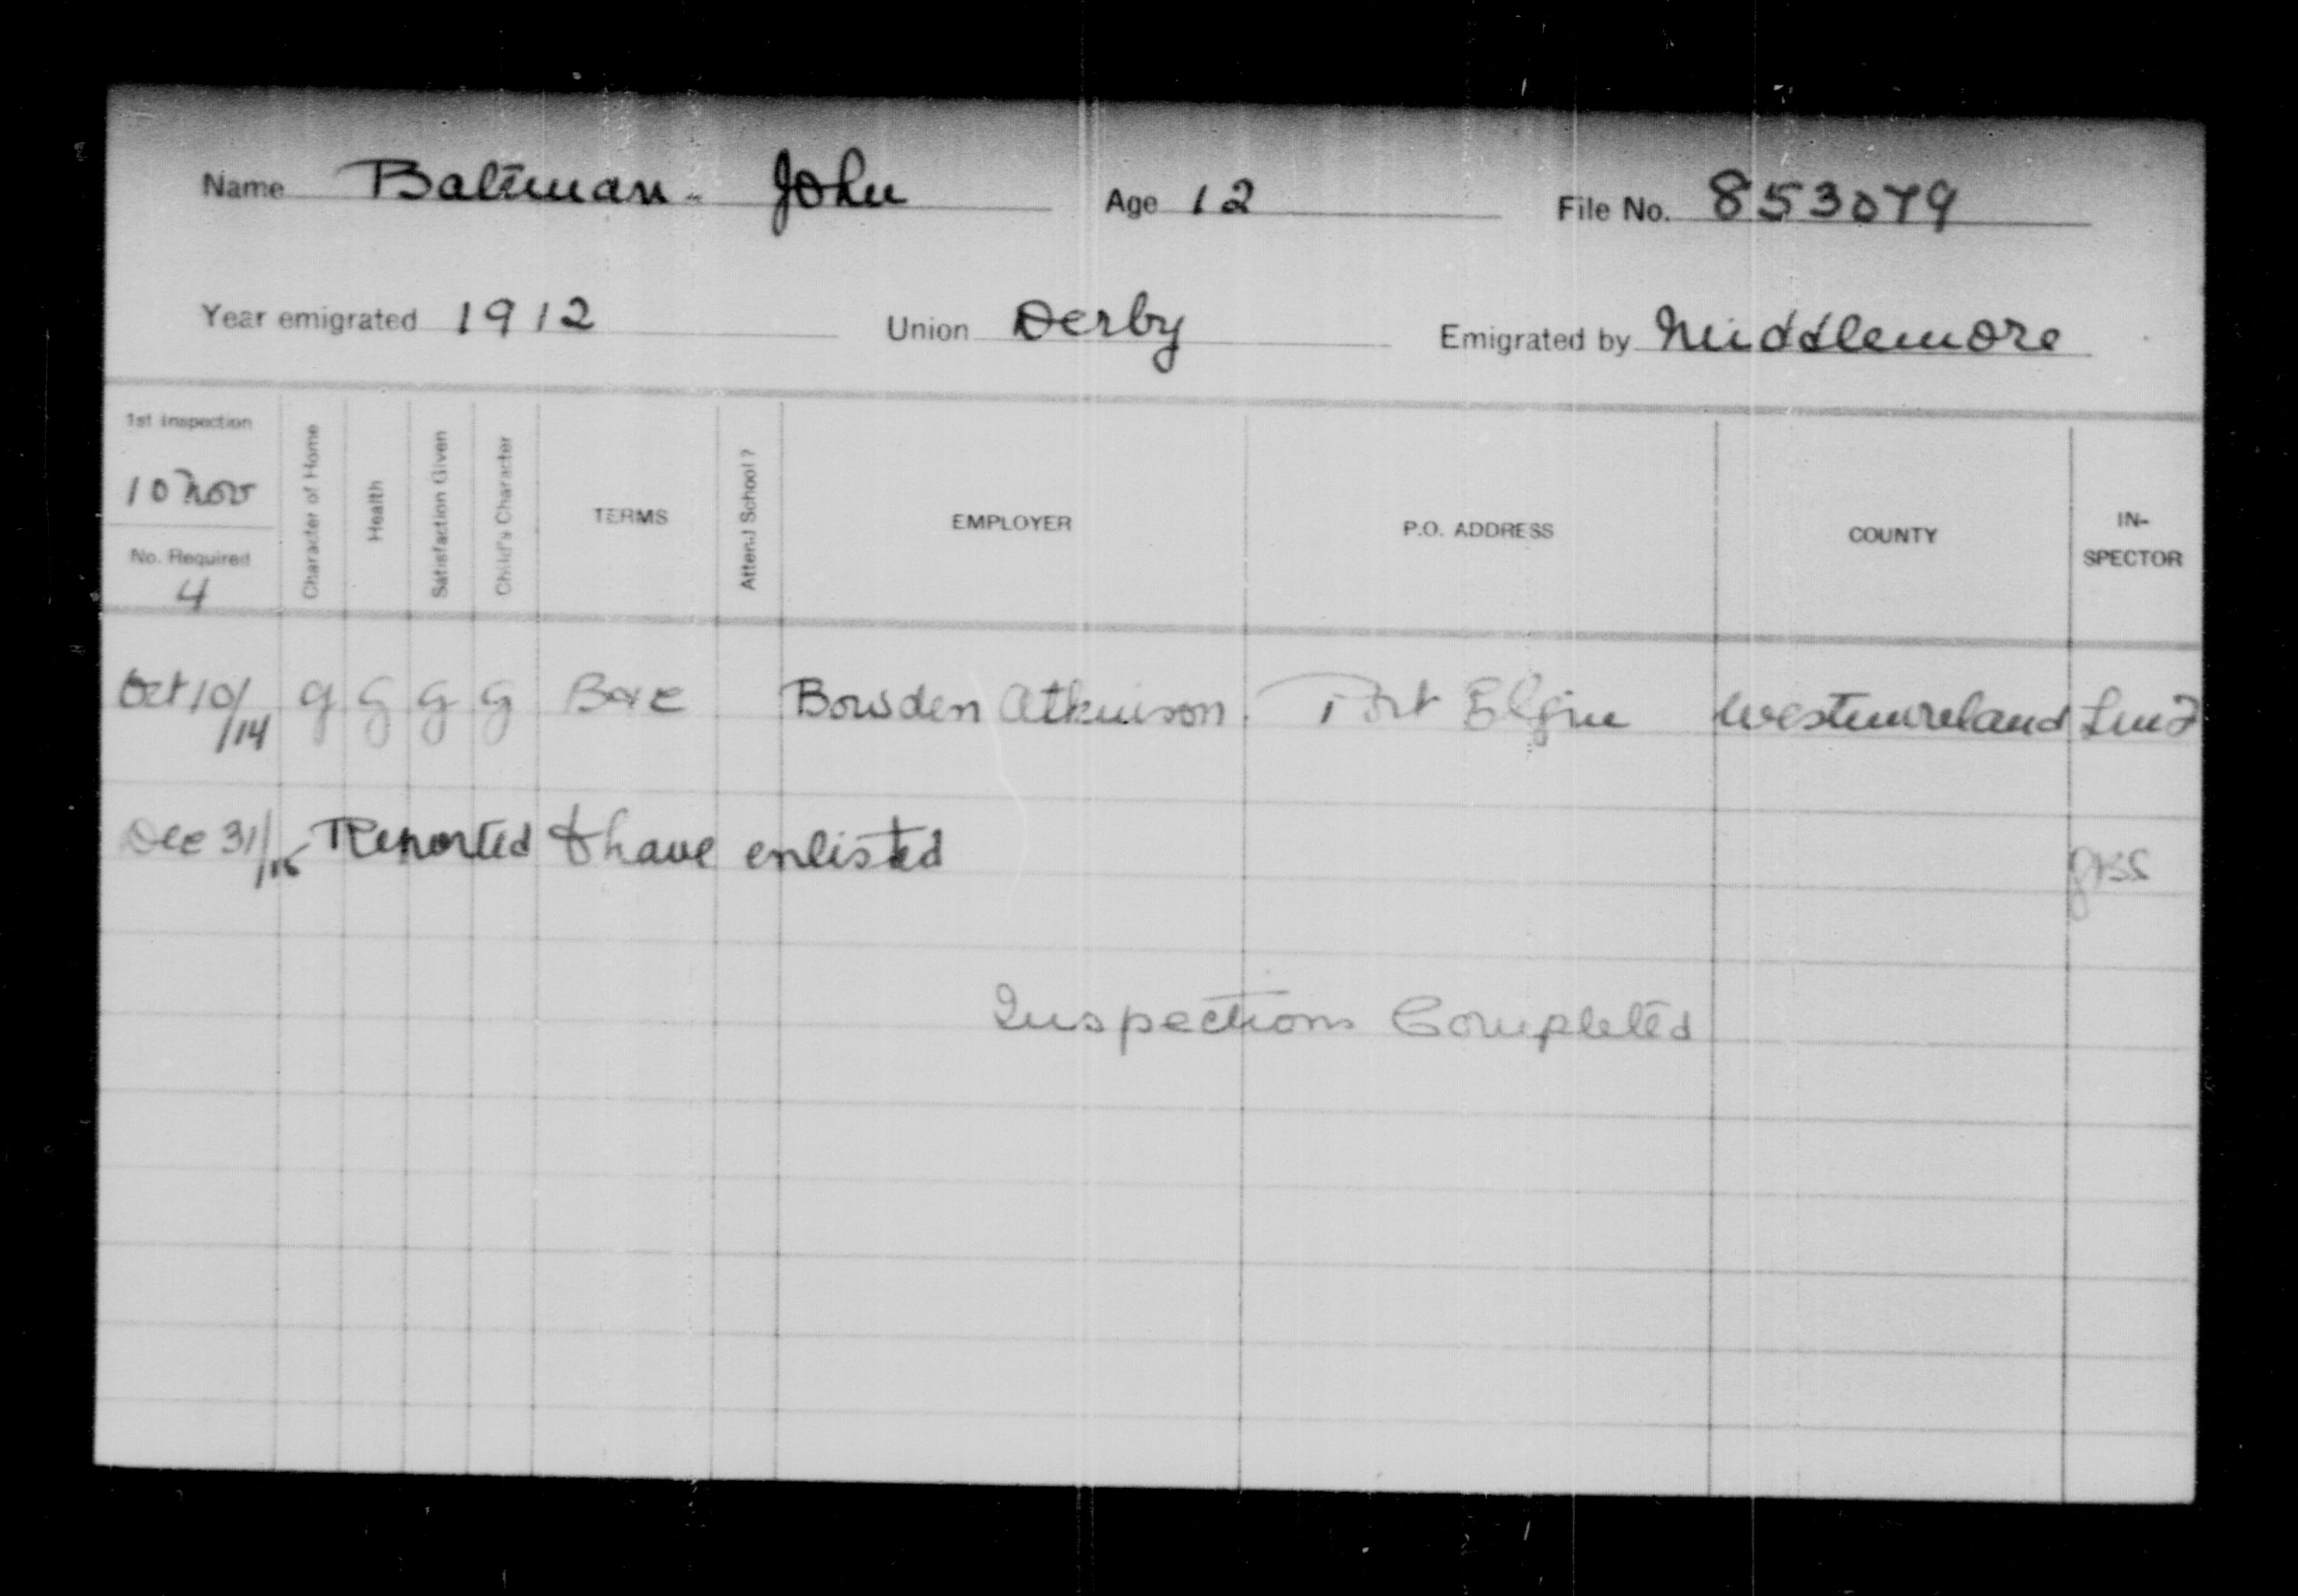 Name Bateman John Age 12 File No. 853079
Year emigrated 1912 Union Derby Emigrated by Middlemore
1st Inspection
10 Nov
No. Required
4
Character of Home
Health
Satisfaction Given
Child's Character
TERMS
Attend School?
EMPLOYER
P.O. ADDRESS
COUNTY
IN-
SPECTOR
Oct 10/14 g g g g B&C Bowden Atkinson Port Elgin Westmoreland
Dec 31/15 Reported to have enlisted GBS
Inspections Completed